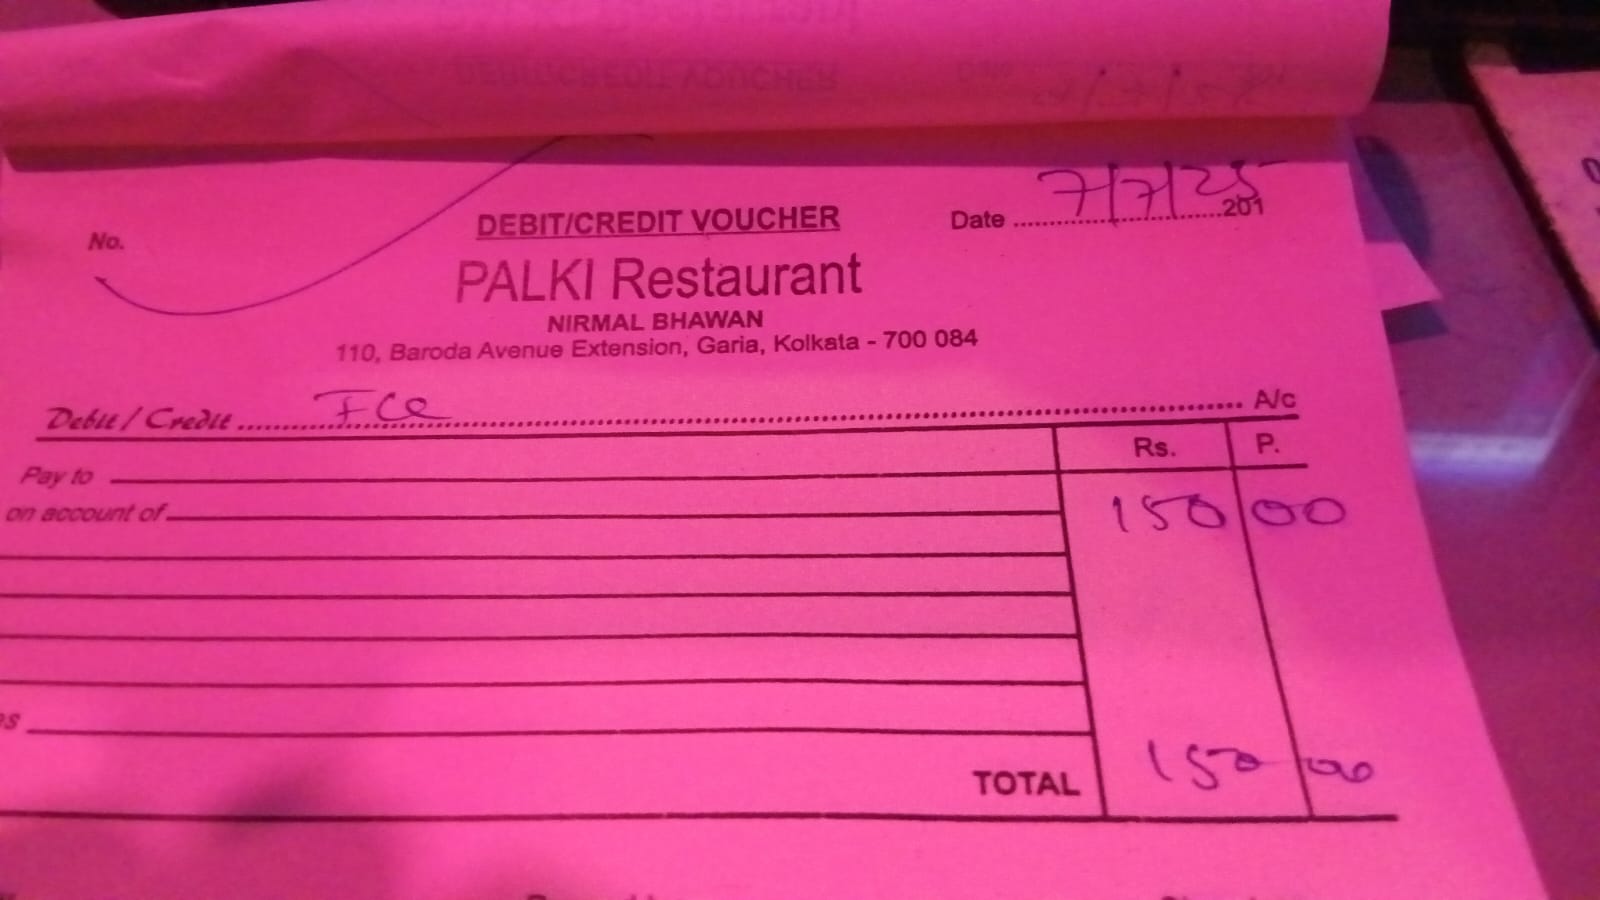 No.
DEBIT/CREDIT VOUCHER
Date ........................201
7/7/25
PALKI Restaurant
NIRMAL BHAWAN
110, Baroda Avenue Extension, Garia, Kolkata - 700 084
Debit / Credit ........................ A/c
Rs. P.
Pay to
on account of
150 00
TOTAL 150 00